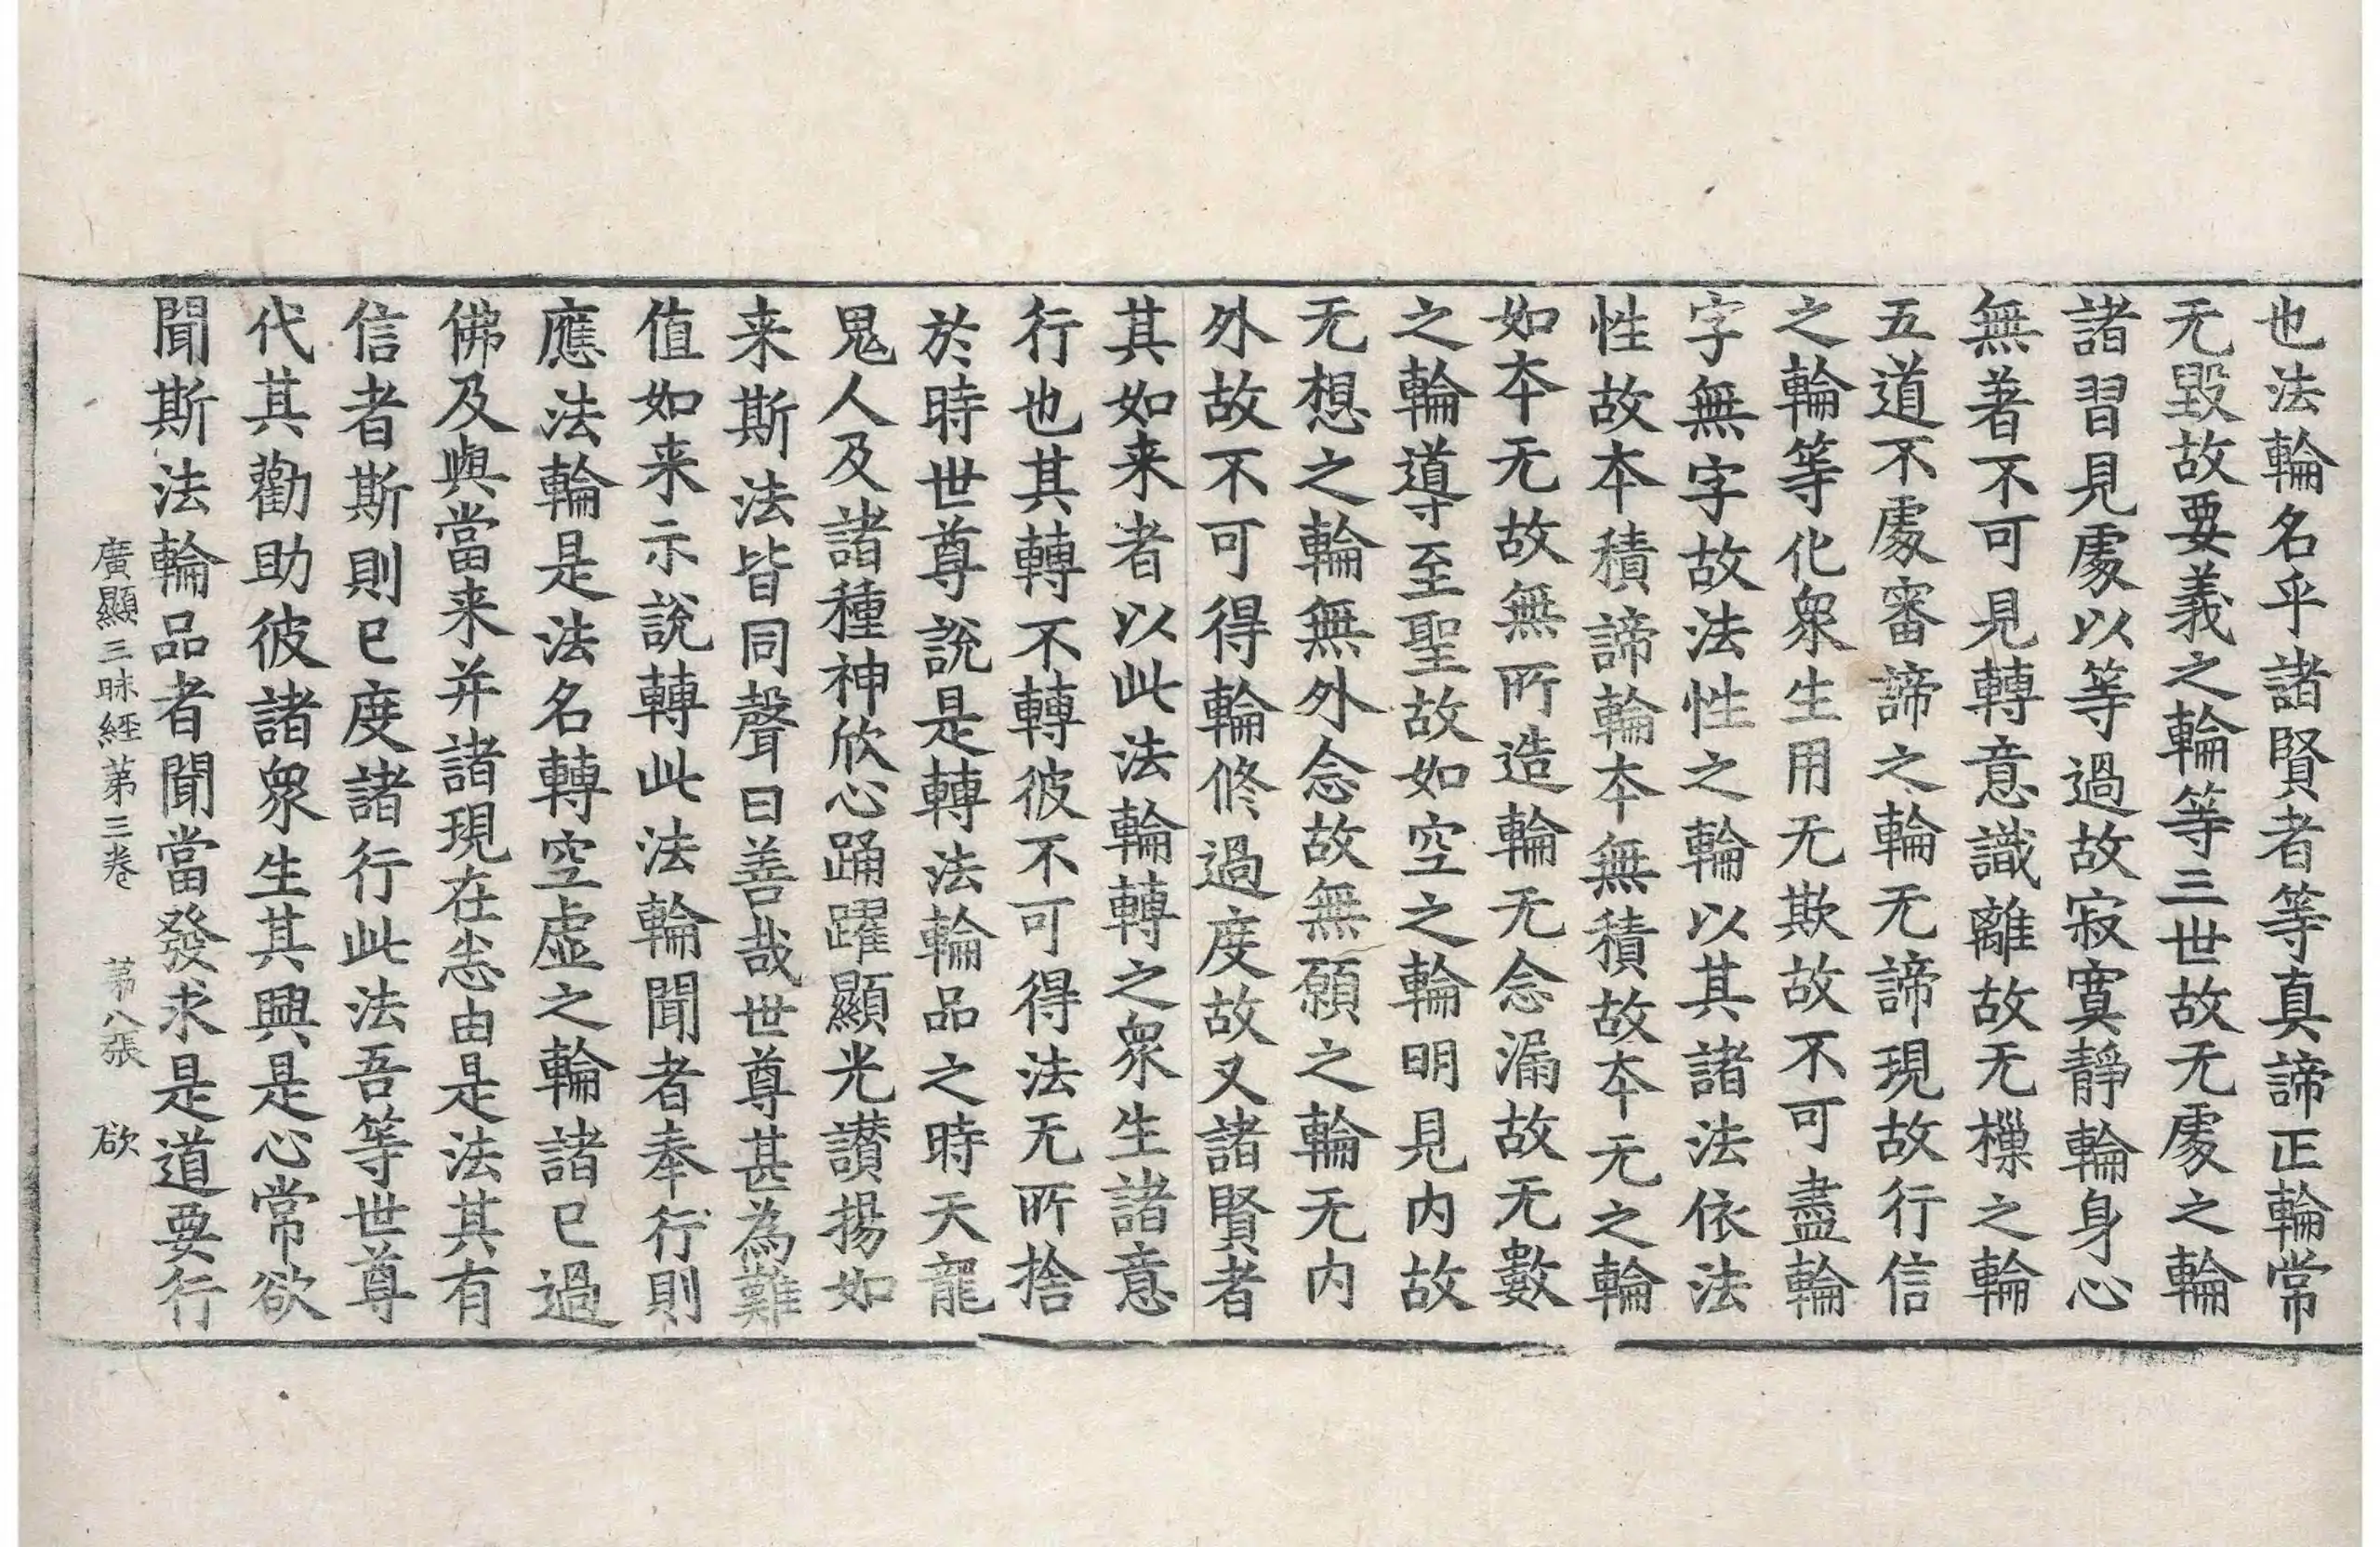 也法輪名乎諸賢者等真諦正輪常
无毀故要義之輪等三世故无處之輪
諸習見處以等過故寂寞靜輪身心
無著不可見轉意識離故无樔之輪
五道不處審諦之輪无諦現故行信
之輪等化衆生用无欺故不可盡輪
字無字故法性之輪以其諸法依法
性故本積諦輪本無積故本无之輪
如本无故無所造輪无念漏故无數
之輪導至聖故如空之輪明見內故
无想之輪無外念故無願之輪无內
外故不可得輪修過度故又諸賢者
其如来者以此法輪轉之衆生諸意
行也其轉不轉彼不可得法无所捨
於時世尊說是轉法輪品之時天龍
鬼人及諸種神欣心踊躍顯光讃揚如
来斯法皆同聲曰善哉世尊甚為難
值如来示說轉此法輪聞者奉行則
應法輪是法名轉空虛之輪諸已過
佛及與當来并諸現在悉由是法其有
信者斯則已度諸行此法吾等世尊
代其勸助彼諸衆生其興是心常欲
聞斯法輪品者聞當發求是道要行
廣顯三昧經第三卷 第八張 欲